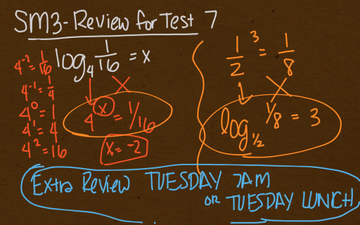 SM3-Review for Test 7
4⁻²=1/16
4⁻¹=1/4
4⁰=1
4¹=4
4²=16
log₄ 1/16 = x
4ˣ = 1/16
x=-2
1/2³ = 1/8
log½ 1/8 = 3
Extra Review TUESDAY 7AM
or TUESDAY LUNCH